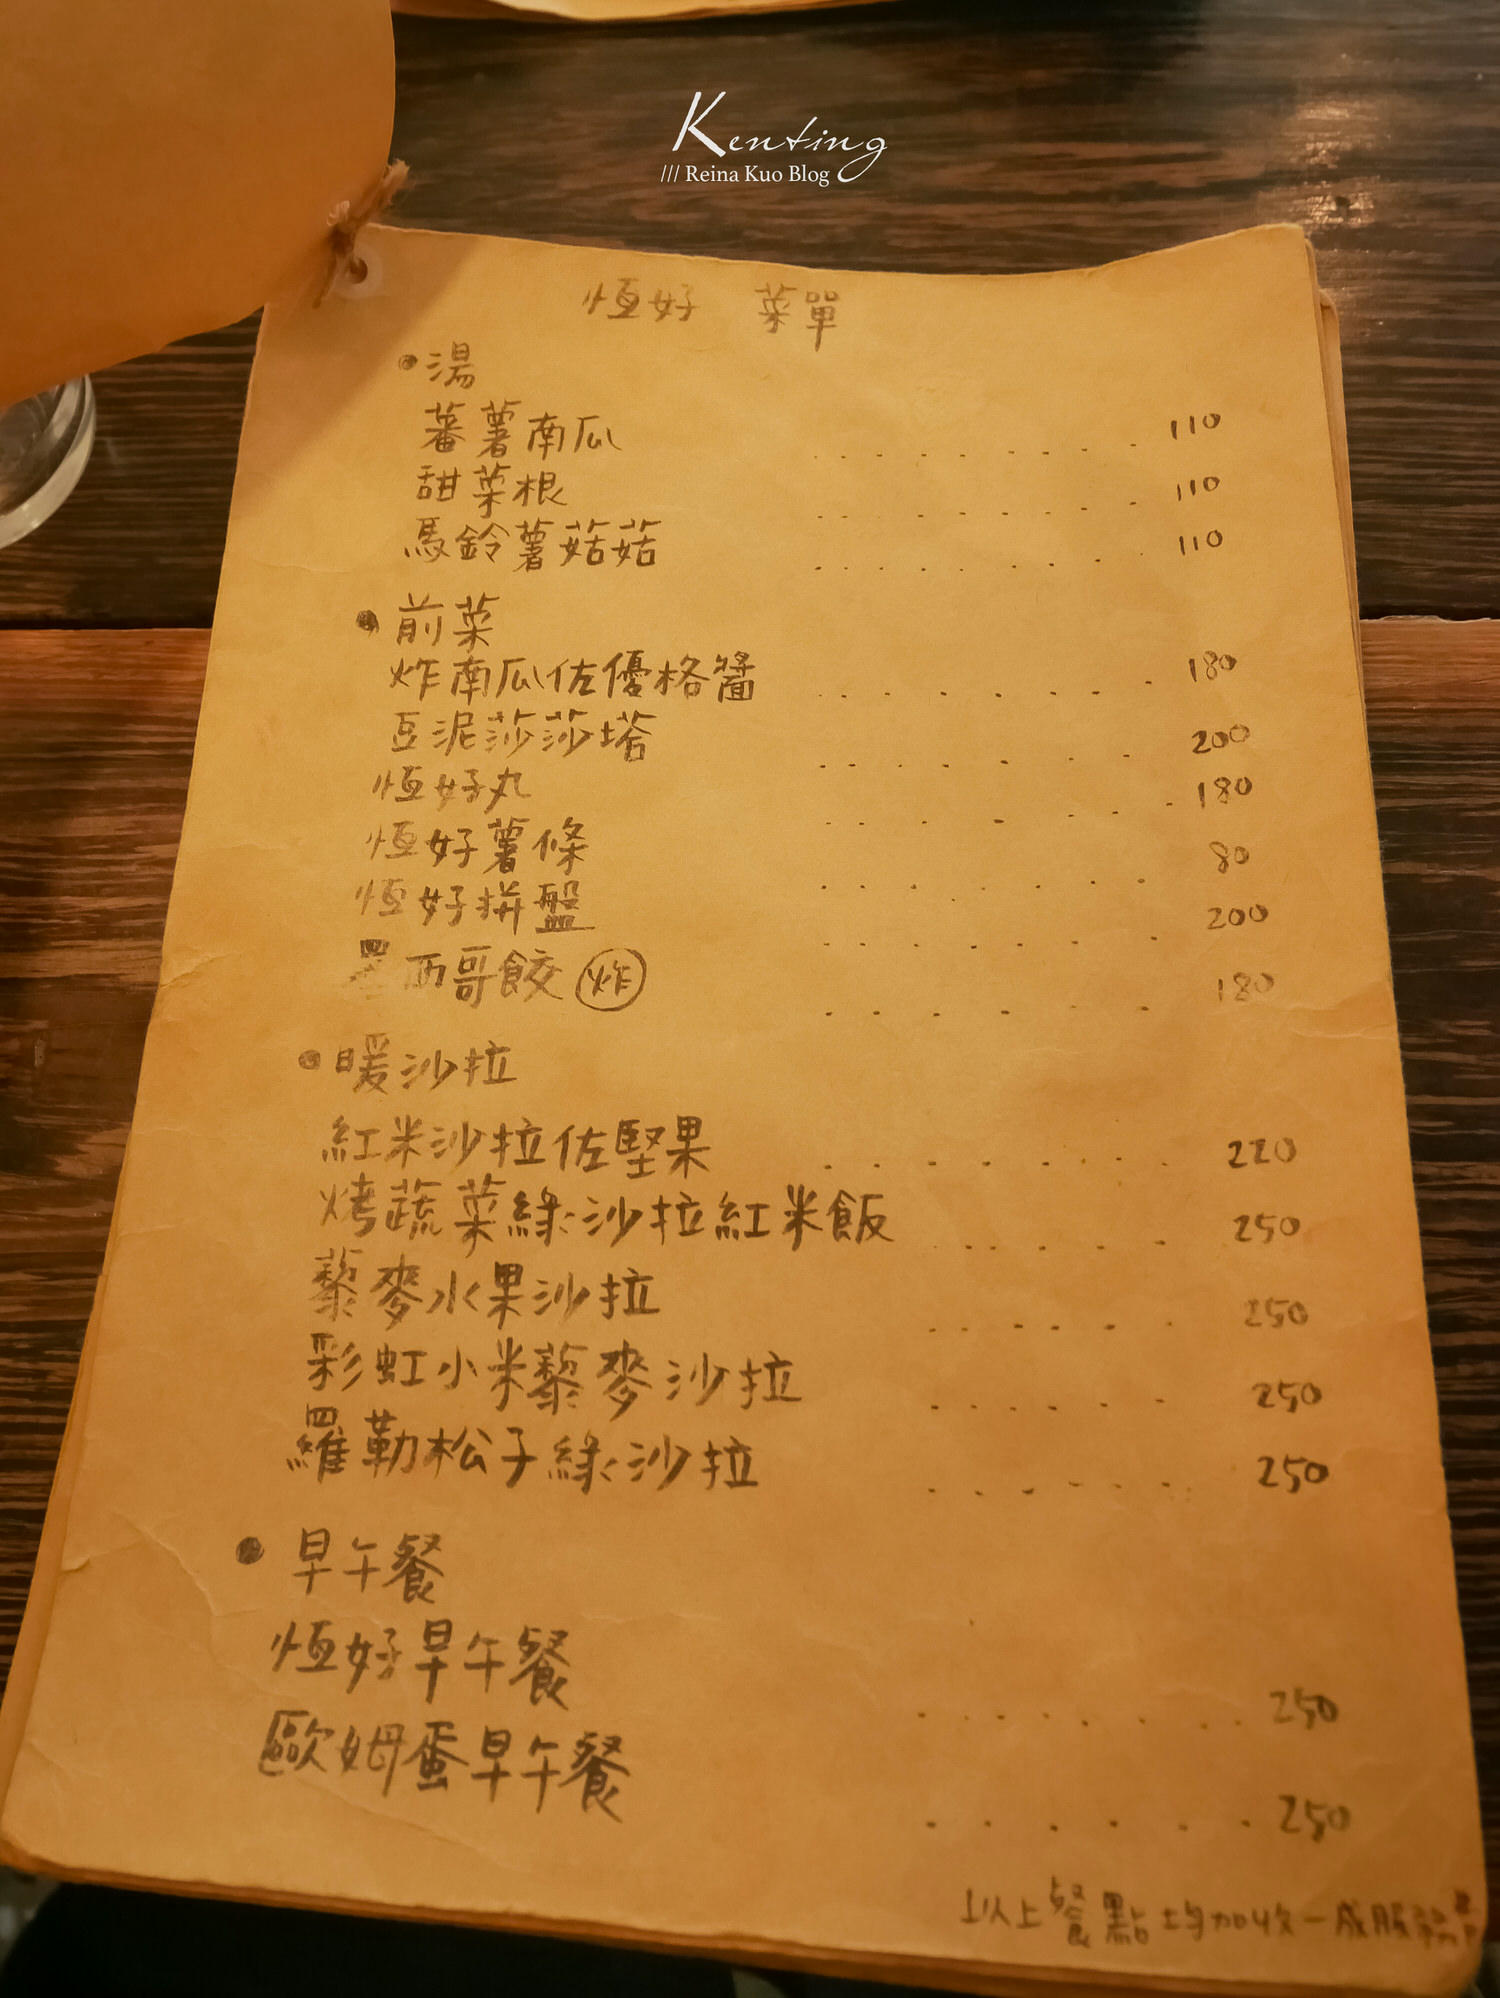 Kenting
/// Reina Kuo Blog
恆好 菜單
●湯
蕃薯南瓜 ........ 110
甜菜根 ........ 110
馬鈴薯菇菇 ........ 110
●前菜
炸南瓜佐優格醬 ........ 180
豆泥莎莎塔 ....... 200
恆好丸 ....... 180
恆好薯條 ....... 80
恆好拼盤 ....... 200
墨西哥餃 炸 ....... 180
●暖沙拉
紅米沙拉佐堅果 ........ 220
烤蔬菜綠沙拉紅米飯 ...... 250
藜麥水果沙拉 ...... 250
彩虹小米藜麥沙拉 ...... 250
羅勒松子綠沙拉 ...... 250
● 早午餐
恆好早午餐 ........ 250
歐姆蛋早午餐 ...... 250
以上餐點均加收一成服務費